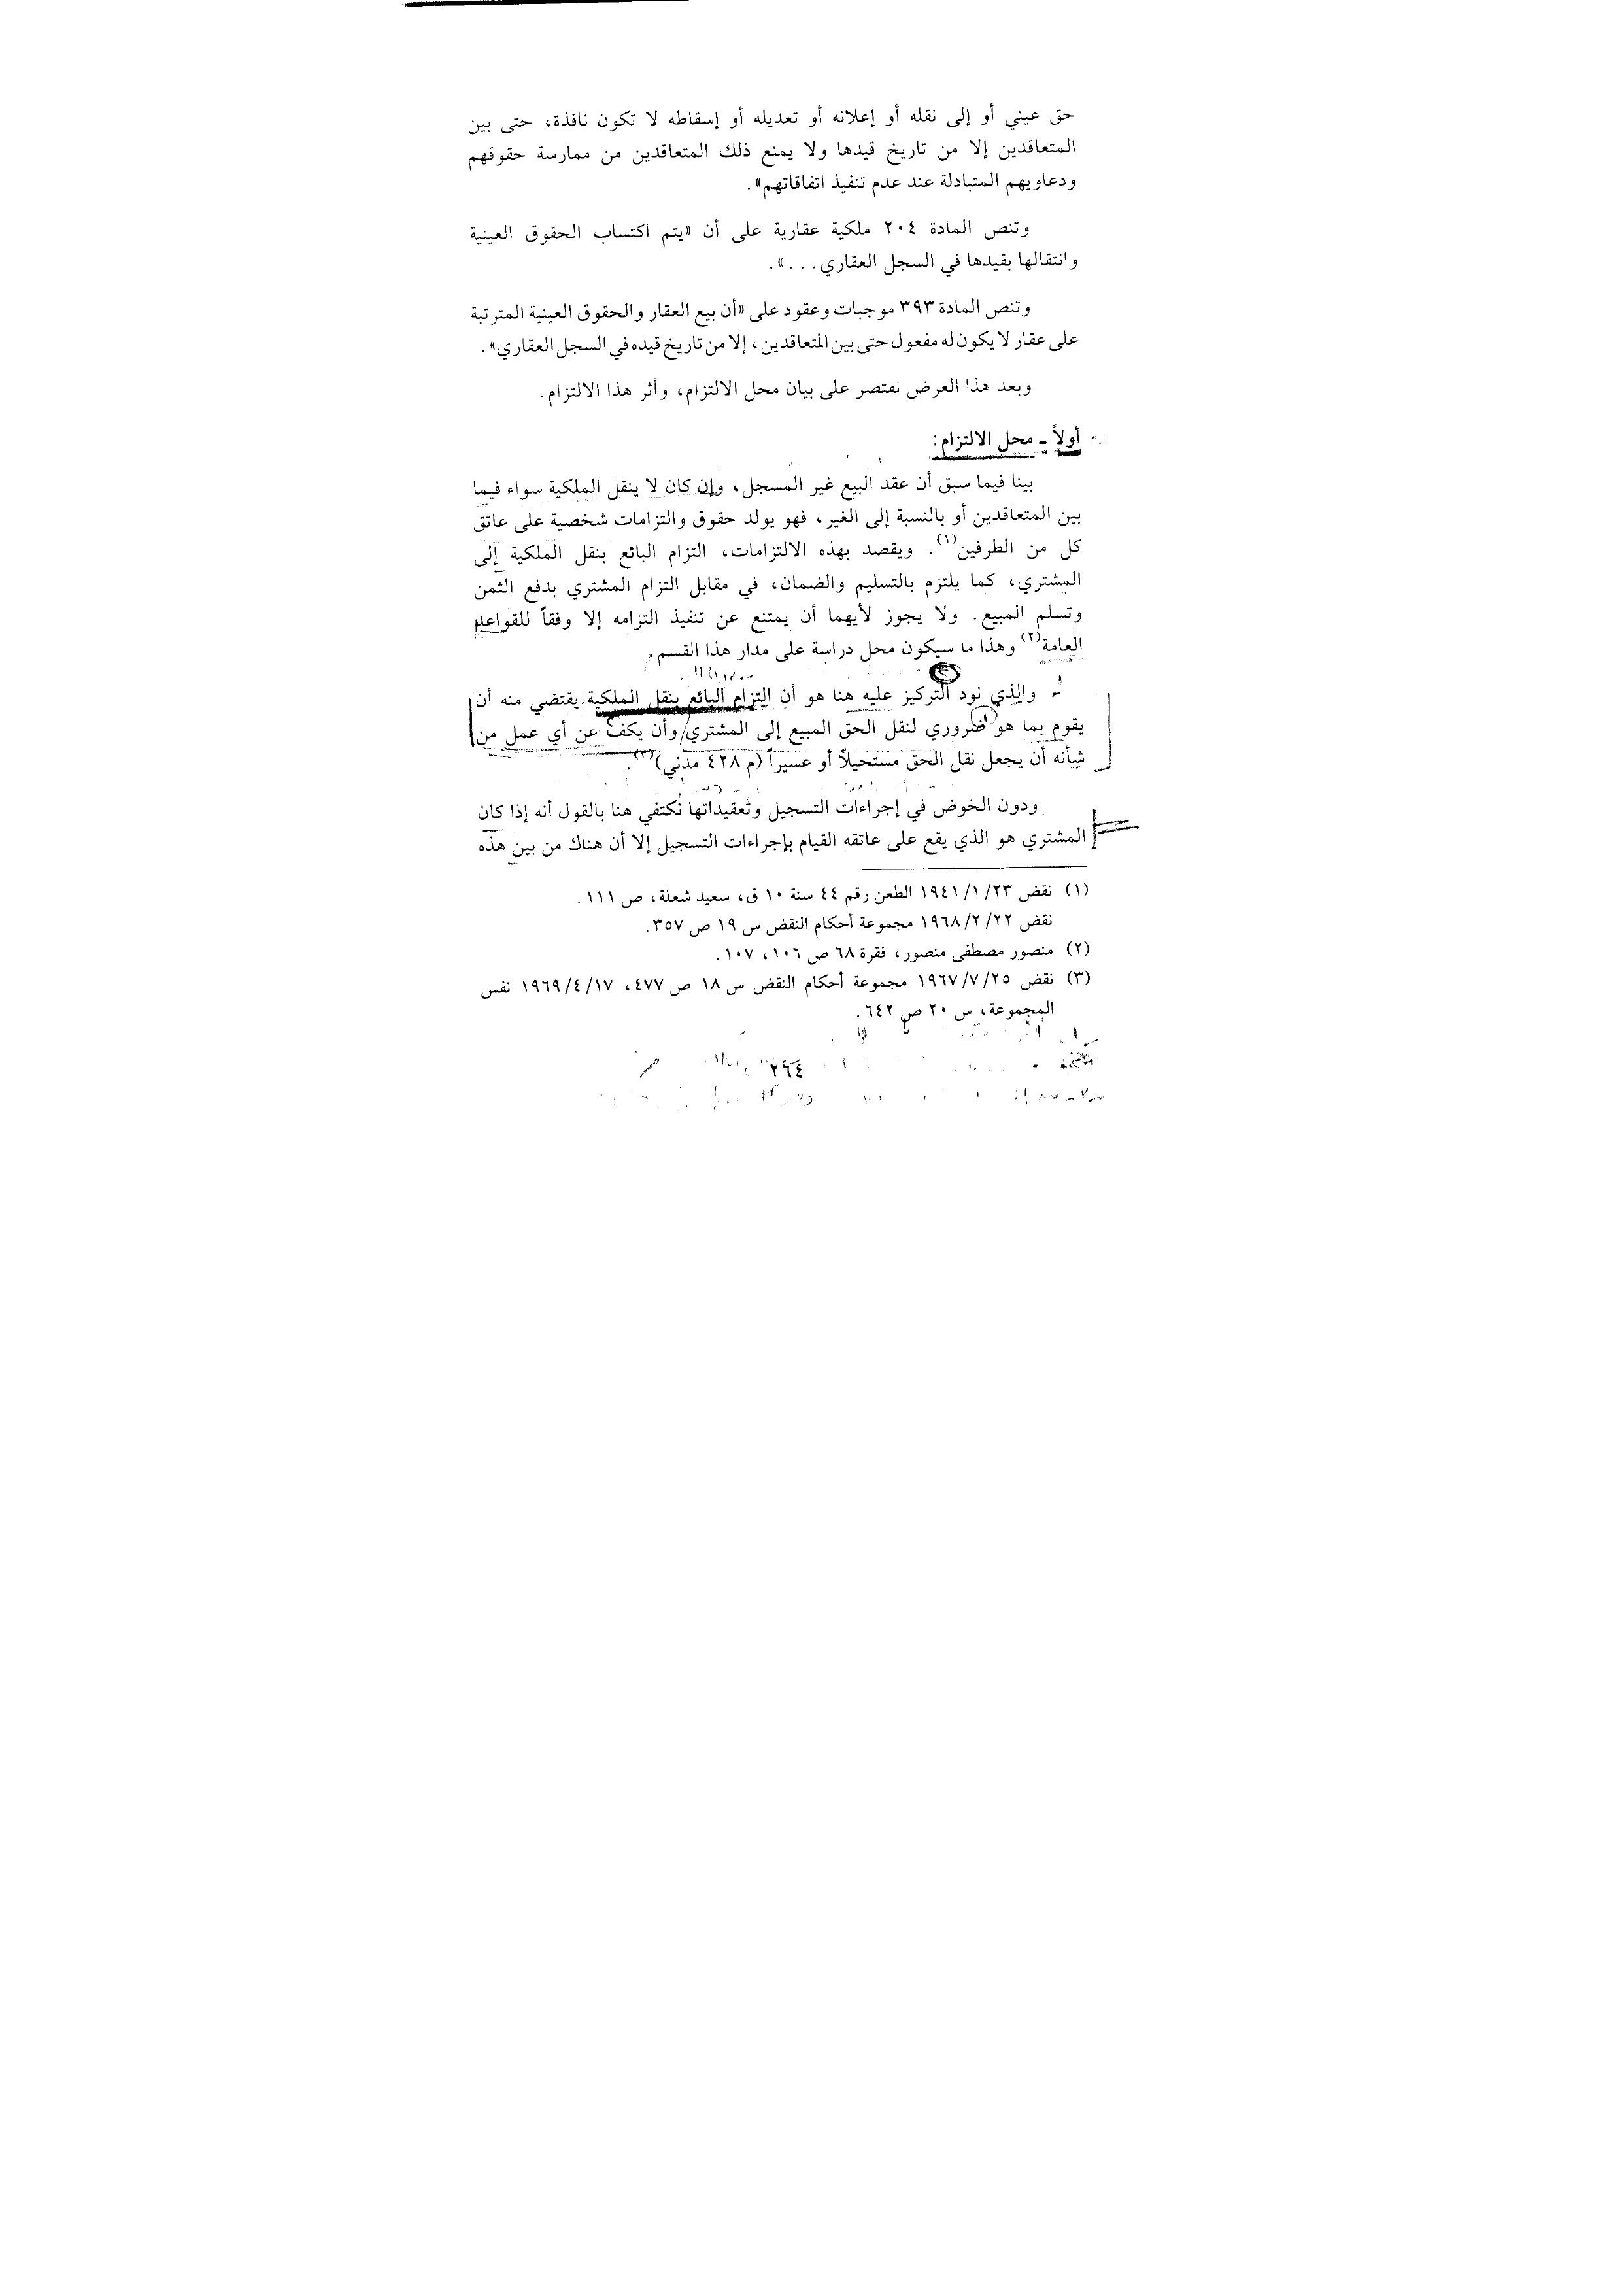 حق عيني أو إلى نقله أو إعلانه أو تعديله أو إسقاطه لا تكون نافذة، حتى بين
المتعاقدين إلا من تاريخ قيدها ولا يمنع ذلك المتعاقدين من ممارسة حقوقهم
ودعاويهم المتبادلة عند عدم تنفيذ اتفاقاتهم».
وتنص المادة ٢٠٤ ملكية عقارية على أن «يتم اكتساب الحقوق العينية
وانتقالها بقيدها في السجل العقاري...».
وتنص المادة ٣٩٣ موجبات وعقود على «أن بيع العقار والحقوق العينية المترتبة
على عقار لا يكون له مفعول حتى بين المتعاقدين، إلا من تاريخ قيده في السجل العقاري».
وبعد هذا العرض نقتصر على بيان محل الالتزام، وأثر هذا الالتزام.
أولاً ـ محل الالتزام:
بينا فيما سبق أن عقد البيع غير المسجل، وإن كان لا ينقل الملكية سواء فيما
بين المتعاقدين أو بالنسبة إلى الغير، فهو يولد حقوق والتزامات شخصية على عاتق
كل من الطرفين(١). ويقصد بهذه الالتزامات، التزام البائع بنقل الملكية إلى
المشتري، كما يلتزم بالتسليم والضمان، في مقابل التزام المشتري بدفع الثمن
وتسلم المبيع. ولا يجوز لأيهما أن يمتنع عن تنفيذ التزامه إلا وفقاً للقواعد
العامة(٢) وهذا ما سيكون محل دراسة على مدار هذا القسم.
والذي نود التركيز عليه هنا هو أن التزام البائع بنقل الملكية يقتضي منه أن
يقوم بما هو ضروري لنقل الحق المبيع إلى المشتري وأن يكف عن أي عمل من
شأنه أن يجعل نقل الحق مستحيلاً أو عسيراً (م ٤٢٨ مدني)(٣).
ودون الخوض في إجراءات التسجيل وتعقيداتها نكتفي هنا بالقول أنه إذا كان
المشتري هو الذي يقع على عاتقه القيام بإجراءات التسجيل إلا أن هناك من بين هذه
(١) نقض ١٩٤١/١/٢٣ الطعن رقم ٤٤ سنة ١٠ ق، سعيد شعلة، ص ١١١.
نقض ١٩٦٨/٢/٢٢ مجموعة أحكام النقض س ١٩ ص ٣٥٧.
(٢) منصور مصطفى منصور، فقرة ٦٨ ص ١٠٦، ١٠٧.
(٣) نقض ١٩٦٧/٧/٢٥ مجموعة أحكام النقض س ١٨ ص ٤٧٧، ١٩٦٩/٤/١٧ نفس
المجموعة، س ٢٠ ص ٦٤٢.
٢٦٤